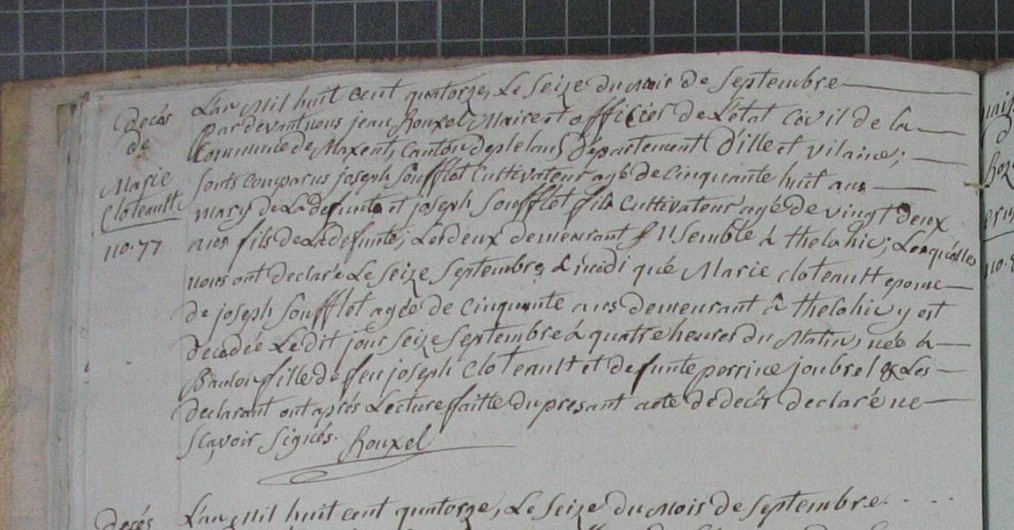 decés
de
Marie
Cloteault
no. 77
L'an Mil huit cent quatorze, Le Seize du Mois de Septembre
par devant nous jean Rouxel Maire et officier de L'état Civil de la
Commune de Maxent, Canton de plelan, Département D'ille et vilaine;
sonts comparus joseph Soufflet Cultivateur agé de Cinquante huit ans
mary de La defunte et joseph Soufflet fils Cultivateur agé de vingt deux
ans fils de La defunte; Les deux demeurant Ensemble à thelohie; Lesquélles
nous ont declaré Le Seize Septembre à midi qué Marie Cloteault epouse
de joseph Soufflet agée de Cinquante ans demeurant à thelohie y est
décédée Le dit jour Seize Septembre à quatre heures du Matin, née à
Baulon fille de feu joseph Cloteault et defunte perrine joubrel & Les
declarant ont aprés Lecture faitte du presant acte de decés declaré ne
sçavoir Signés. Rouxel
decés
L'an Mil huit cent quatorze, Le Seize du Mois de Septembre